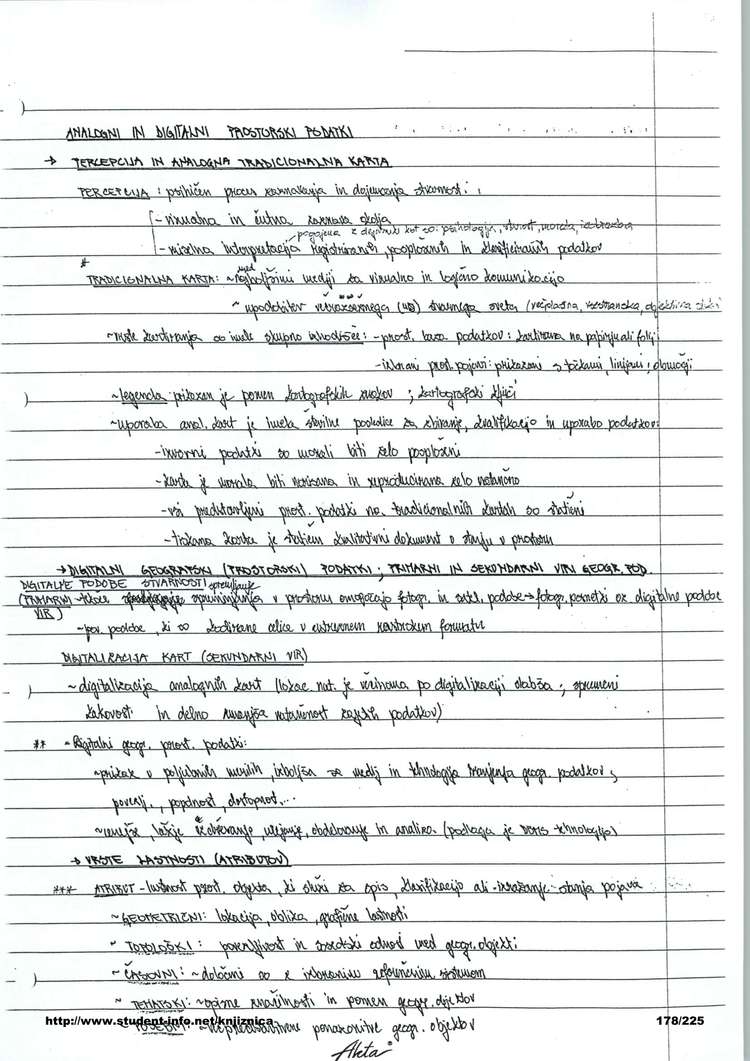 ANALOGNI IN DIGITALNI PROSTORSKI PODATKI
→ PERCEPCIJA IN ANALOGNA TRADICIONALNA KARTA
PERCEPCIJA : psihičen proces zaznavanja in dojemanja stvarnosti :
- vizualna in čutna zaznava okolja
pogojena z dejavniki kot so: psihologija, starost, morala, izobrazba
- miselna interpretacija registriranih, posplošenih in klasificiranih podatkov
*
TRADICIONALNA KARTA: ~ najboljšimi mediji za vizualno in logično komunikacijo
med
~ upodobitev večrazsežnega stvarnega sveta
~ vrste kartiranja so imele skupno izhodišče : - prost. baza podatkov : kartirana na papirju ali foliji
- izbrani prost. pojavi : prikazani s točkami, linijami, območji
~ legenda: prikazan je pomen kartografskih znakov ; kartografski ključi
~ uporaba anal. kart je imela številne posledice za zbiranje, kvalifikacijo in uporabo podatkov:
- izvorni podatki so morali biti zelo posplošeni
- karta je morala biti narisana in reproducirana zelo natančno
- vsi predstavljeni prost. podatki na tradicionalnih kartah so statični
- tiskana karta je statičen kvalitativni dokument o stanju v prostoru
→ DIGITALNI GEOGRAFSKI (PROSTORSKI) PODATKI ; PRIMARNI IN SEKUNDARNI VIRI GEOGR. POD.
DIGITALNE PODOBE STVARNOSTI
(PRIMARNI VIR) v prostoru omogočajo fotogr. in satel. podobe → fotogr. posnetki oz digitalne podobe
- pov podobe, ki so kodirane celice v ustreznem rastrskem formatu
DIGITALIZACIJA KART (SEKUNDARNI VIR)
~ digitalizacija analognih kart (lokac. nat. je večinoma po digitalizaciji slabša ; spremeni
kakovost in delno zmanjša natančnost zajetih podatkov)
** ~ Digitalni geogr. prost. podatki:
~ prikaz v poljubnih merilih, izboljša se medij in tehnologija hranjenja geogr. podatkov ;
povezlj., popolnost, dostopnost...
~ cenejše, lažje vzdrževanje, urejanje, obdelovanje in analiza (podlaga je tehnologija)
→ VRSTE LASTNOSTI (ATRIBUTOV)
*** ATRIBUT - lastnost prost. objekta, ki služi za opis, klasifikacijo ali izražanje stanja pojava
~ GEOMETRIČNI: lokacija, oblika, grafične lastnosti
~ TOPOLOŠKI : povezljivost in sosedski odnosi med geogr. objekti
~ ČASOVNI : ~ določeni so z izbranim referenčnim sistemom
~ TEMATSKI: ~ opisne značilnosti in pomen geogr. objektov
ponazoritve geogr. objektov
http://www.student-info.net/knjiznica
178/225